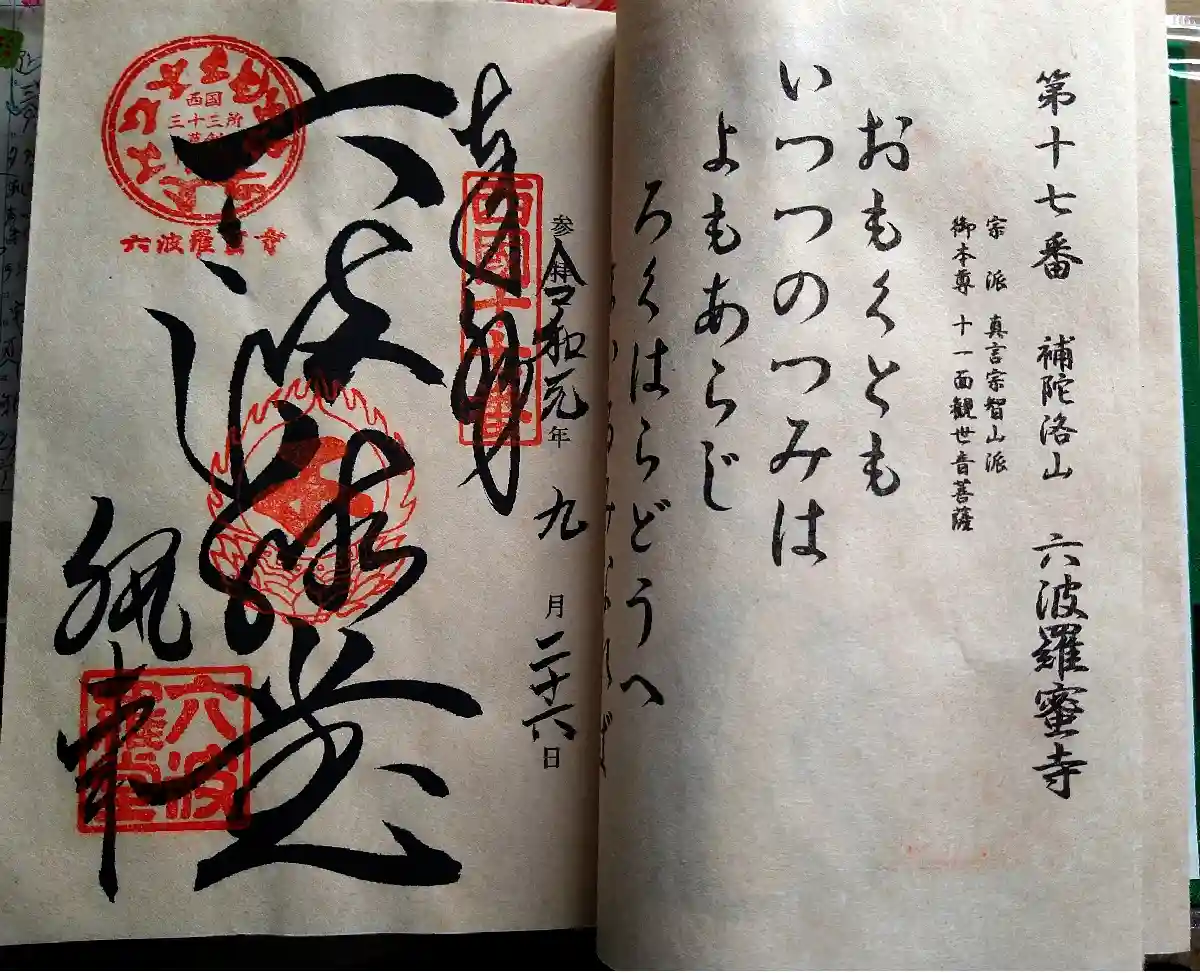 第十七番 補陀洛山 六波羅蜜寺
宗派 真言宗智山派
御本尊 十一面観世音菩薩
おもくとも
いつつのつみは
よもあらじ
ろくはらどうへ
参拝 令和元年 九月二十六日
奉拝
西國十七番
六波羅堂
蜜寺
西国
三十三所
草創
六波羅蜜寺
六波羅堂